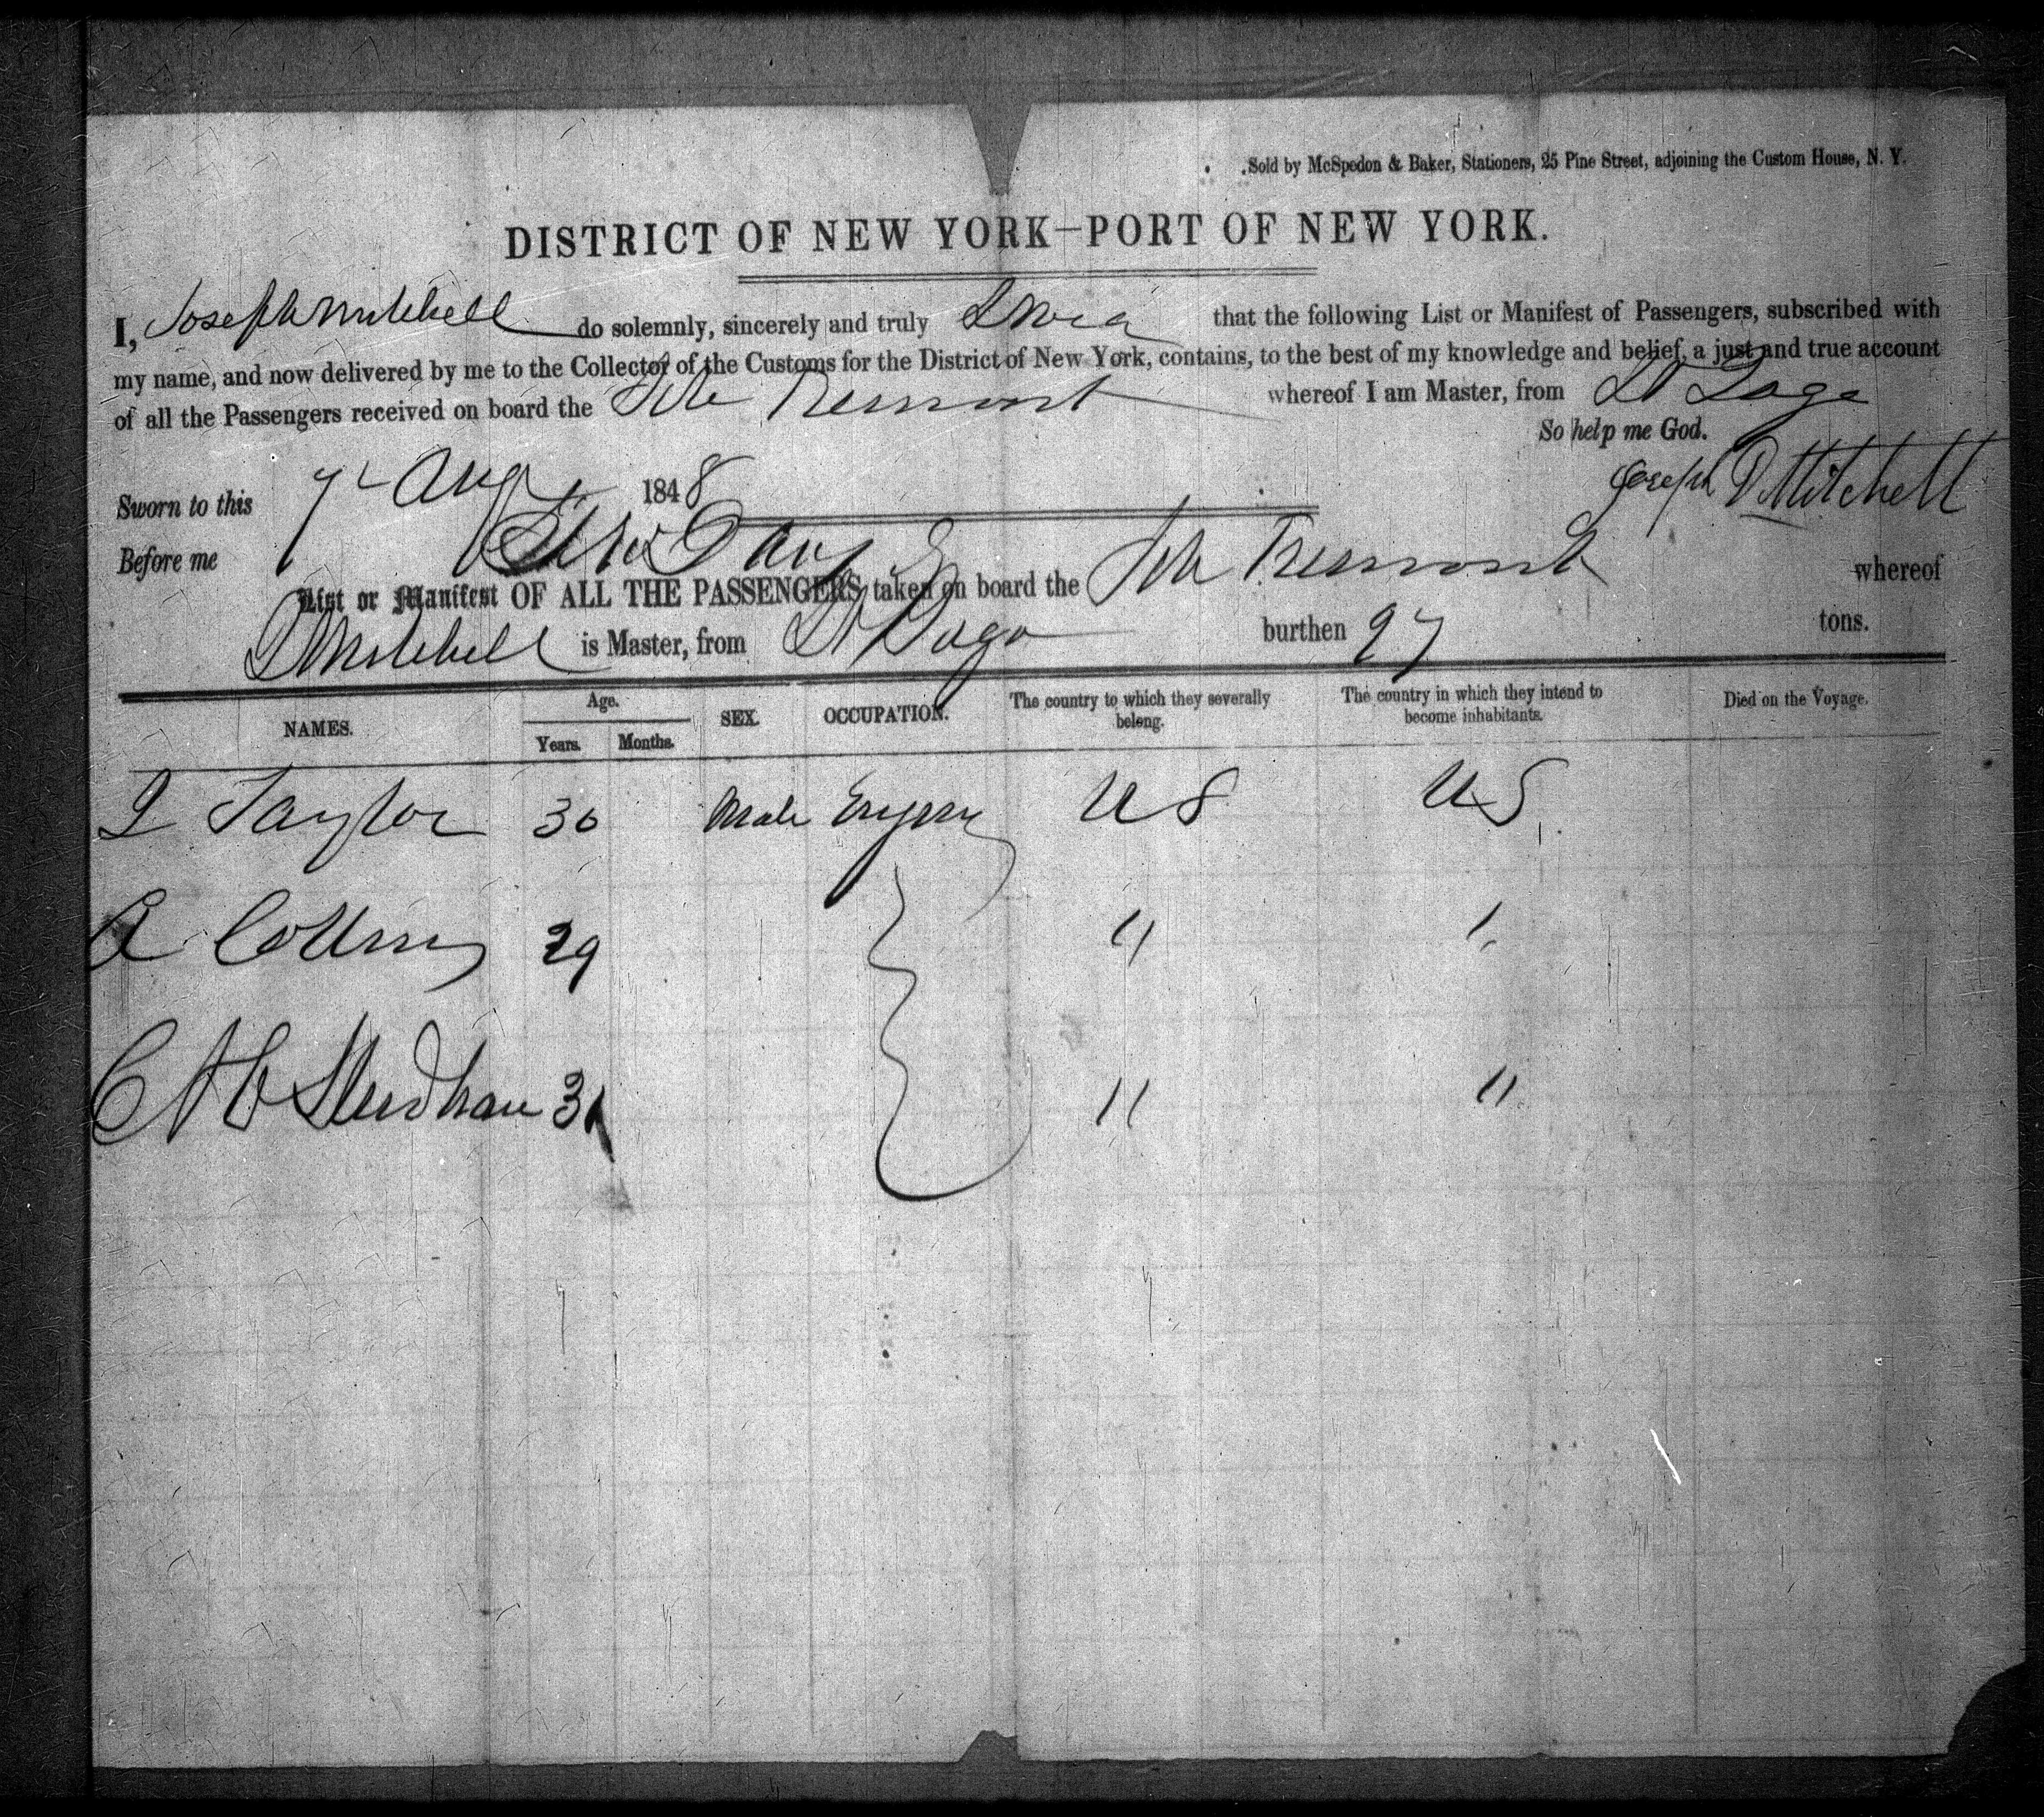 Sold by McSpedon & Baker, Stationers, 25 Pine Street, adjoining the Custom House, N. Y.
DISTRICT OF NEW YORK—PORT OF NEW YORK.
I, Joseph Mitchell do solemnly, sincerely and truly Swear that the following List or Manifest of Passengers, subscribed with
my name, and now delivered by me to the Collector of the Customs for the District of New York, contains, to the best of my knowledge and belief, a just and true account
of all the Passengers received on board the Sch Tremont whereof I am Master, from St Iago
So help me God.
Sworn to this 7 Aug 1848 Joseph D Mitchell
Before me
List or Manifest OF ALL THE PASSENGERS taken on board the Sch Tremont whereof
Mitchell is Master, from St Iago burthen 97 tons.
NAMES. Age. Years. Months. SEX. OCCUPATION. The country to which they severally belong. The country in which they intend to become inhabitants. Died on the Voyage.
Taylor 30 Male US US
A Collins 29 " "
C 31 " "